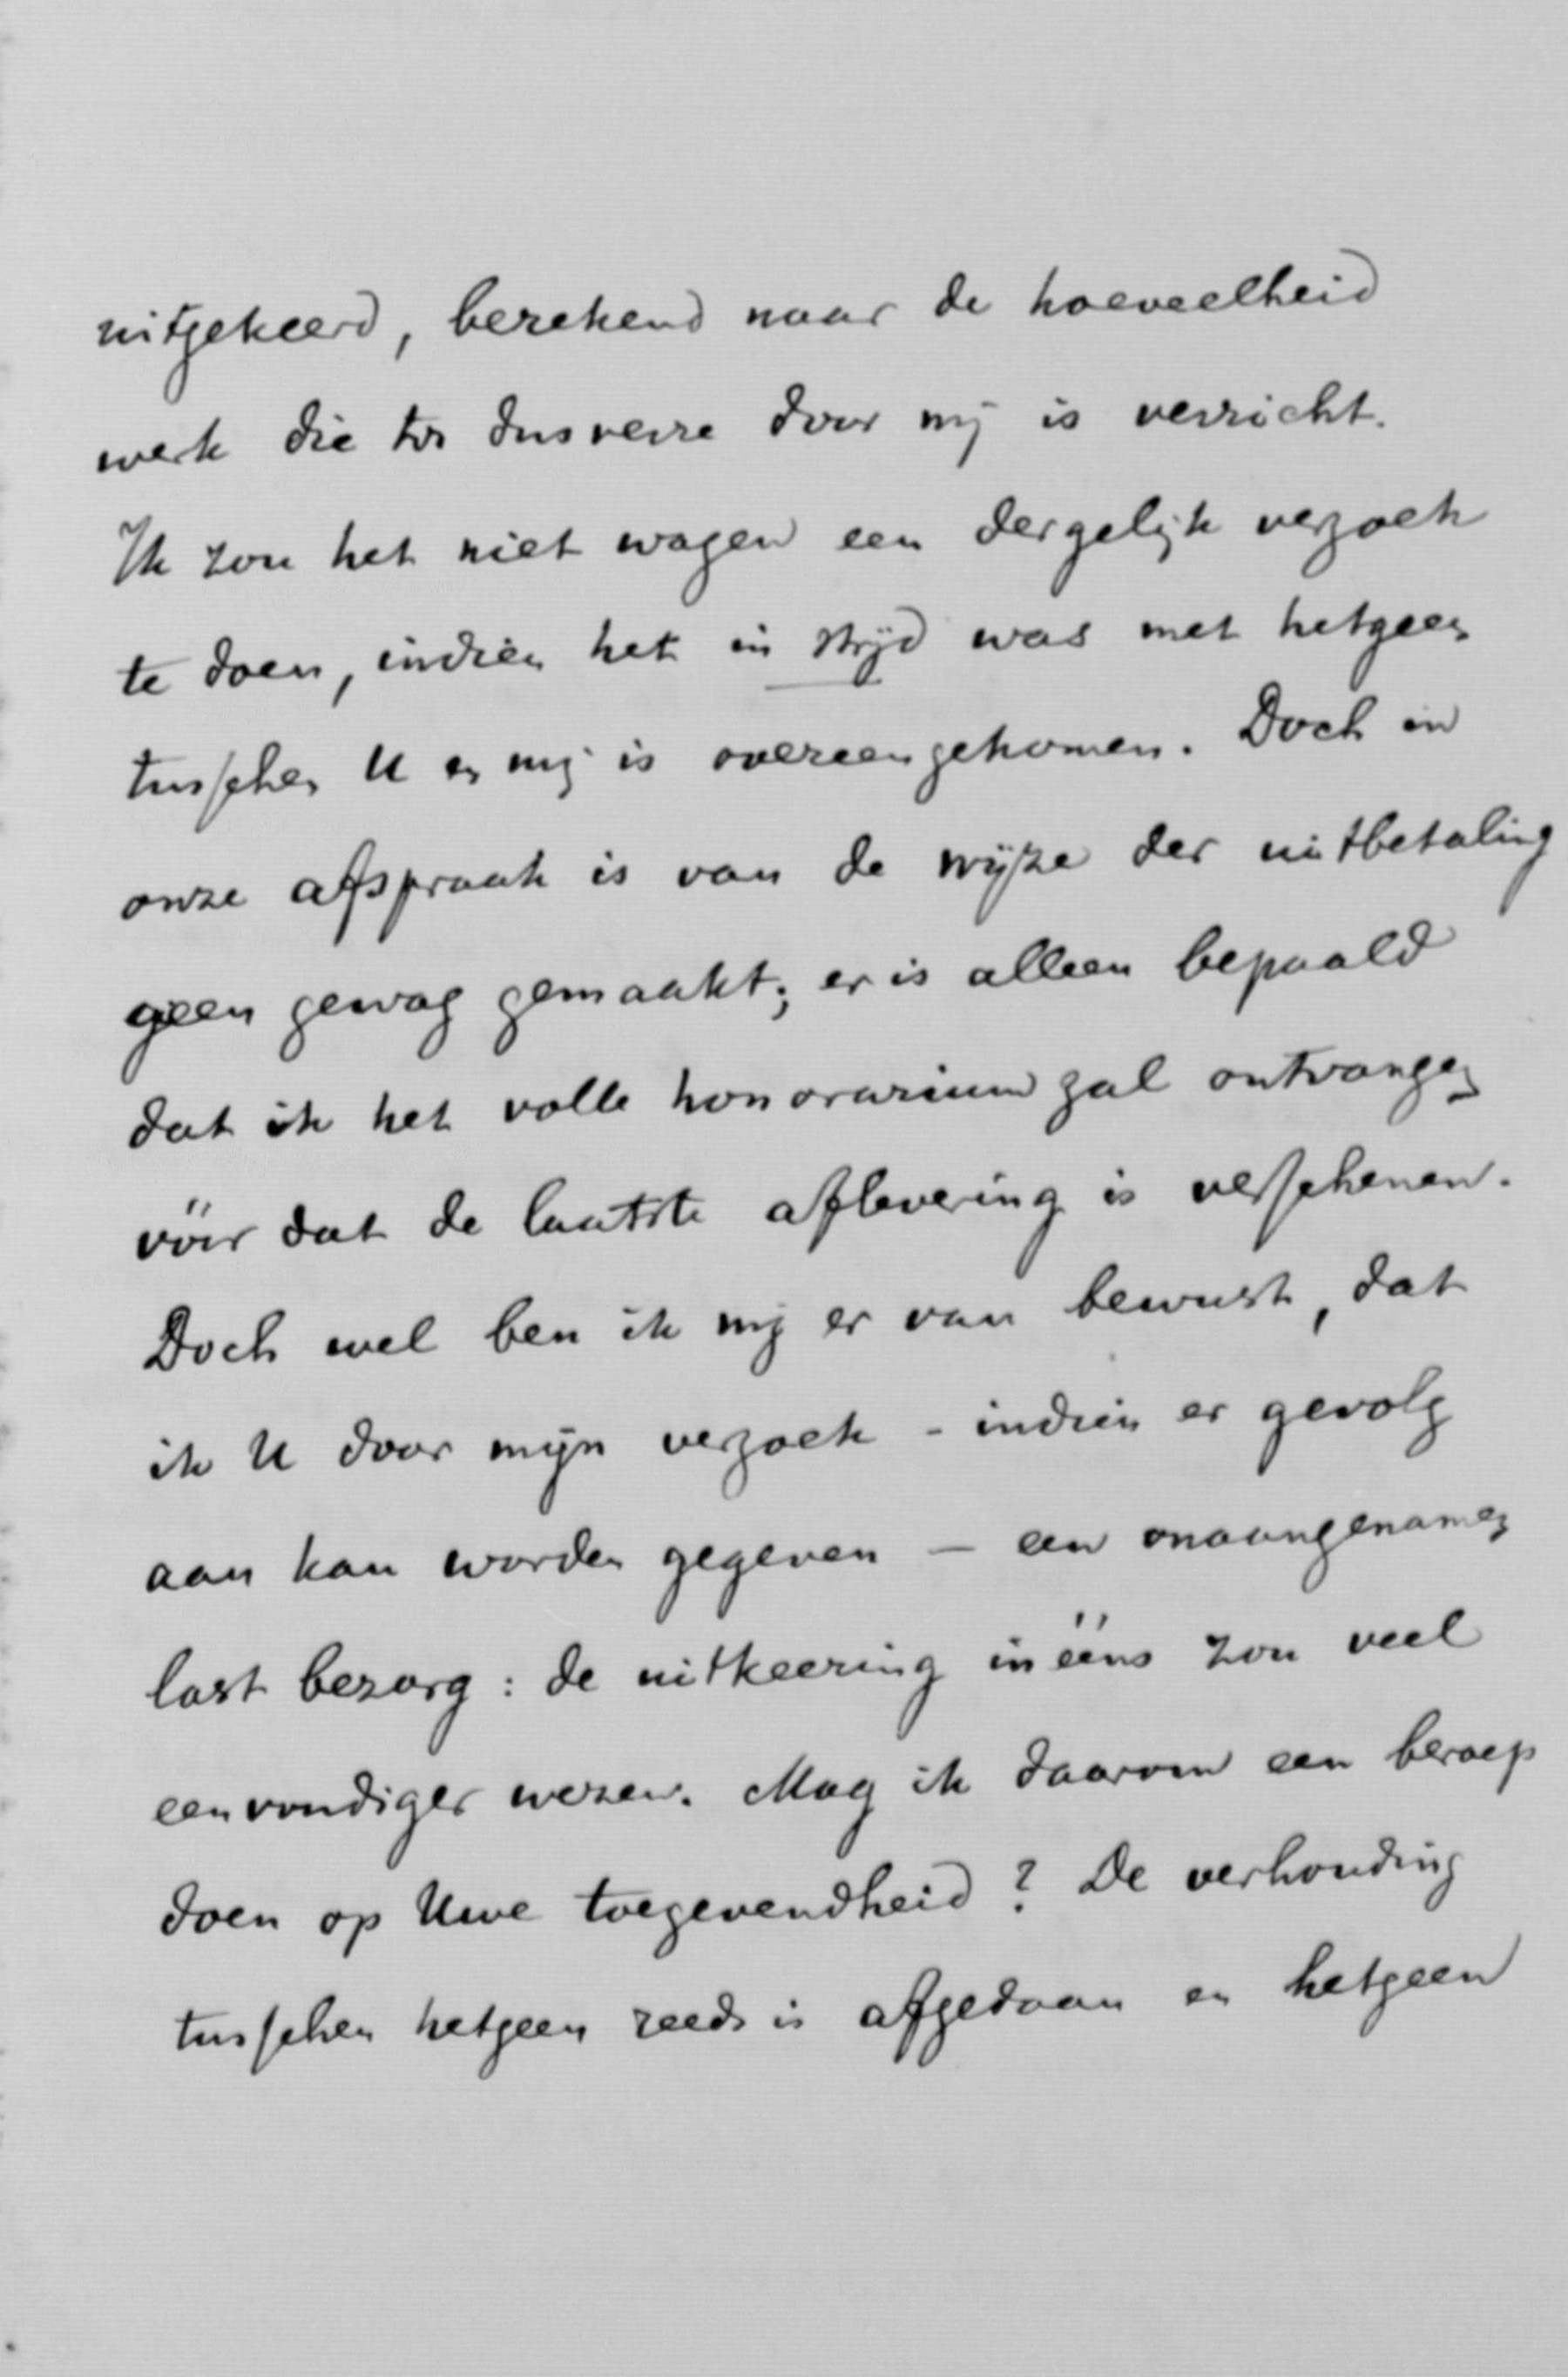 uitgekeerd, berekend naar de hoeveelheid
werk die tot dusverre door mij is verricht.
Ik zou het niet wagen een dergelijk verzoek
te doen, indien het in strijd was met hetgeen
tusschen U en mij is overeengekomen. Doch in
onze afspraak is van de wijze der uitbetaling
geen gewag gemaakt; er is alleen bepaald
dat ik het volle honorarium zal ontvangen
vóór dat de laatste aflevering is verschenen.
Doch wel ben ik mij er van bewust, dat
ik U door mijn verzoek - indien er gevolg
aan kan worden gegeven — een onaangenamen
last bezorg: de uitkeering in ééns zou veel
eenvoudiger wezen. Mag ik daarom een beroep
doen op Uwe toegevendheid? De verhouding
tusschen hetgeen reeds is afgedaan en hetgeen